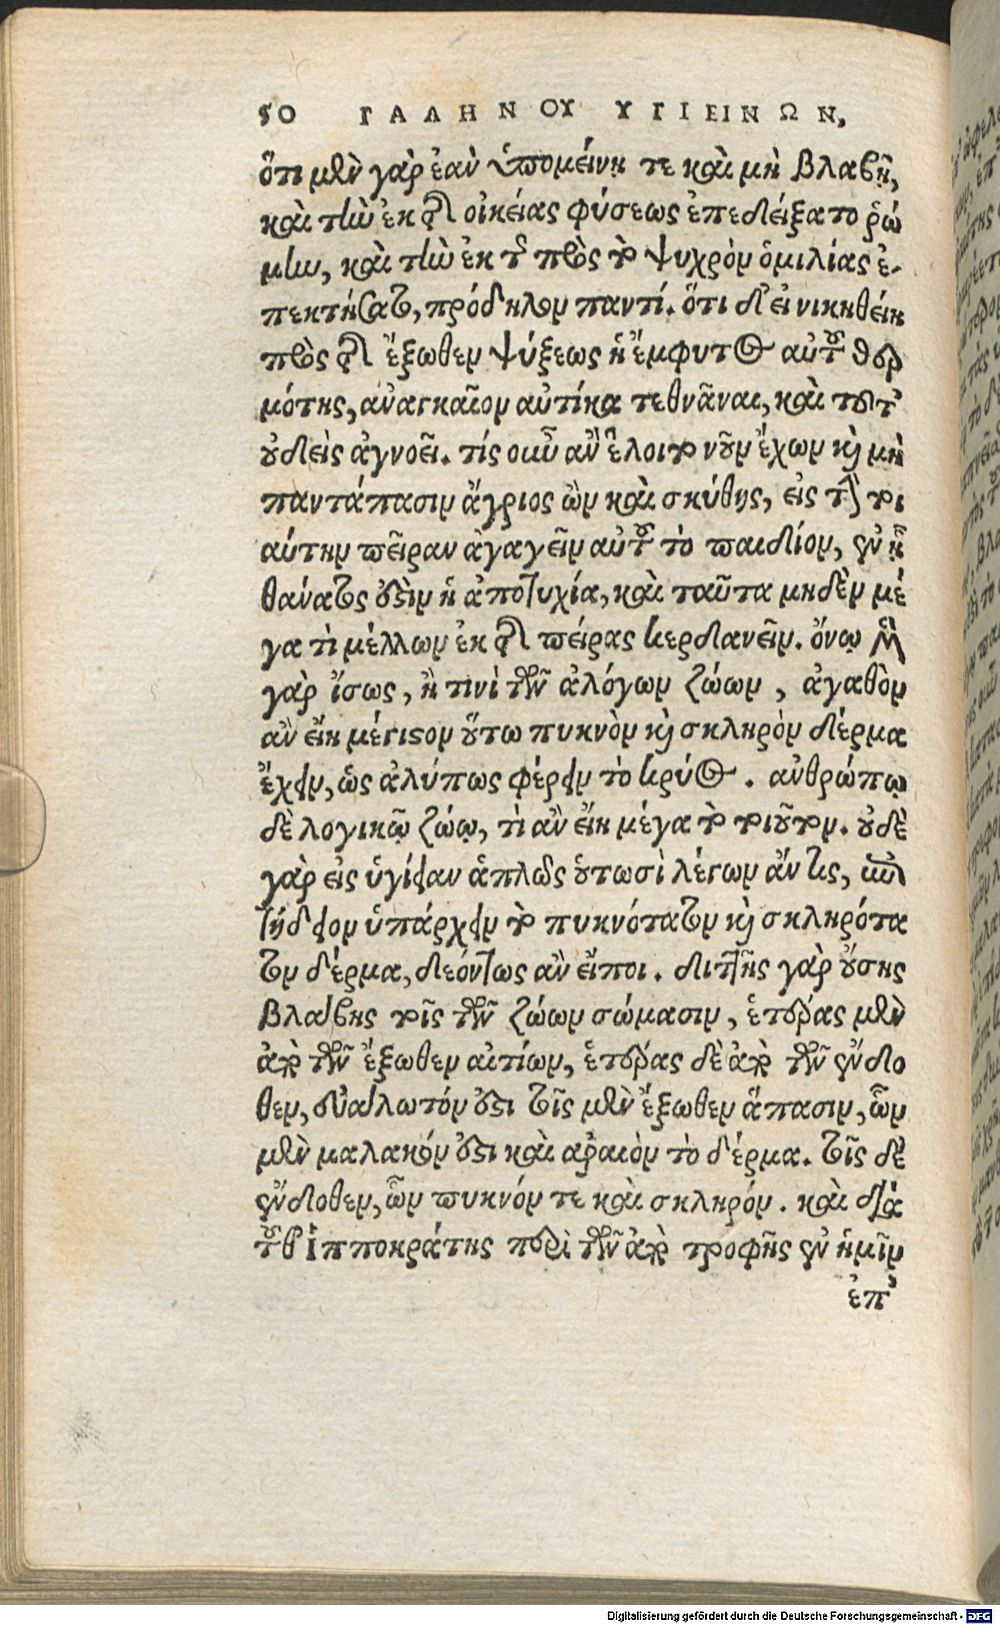 50 ΓΑΛΗΝΟΥ ΥΓΙΕΙΝΩΝ,
ὅτι μὲν γὰρ ἐὰν ὑπομείνῃ τε καὶ μὴ βλαβῇ,
καὶ τὴν ἐκ τῆς οἰκείας φύσεως ἐπεδείξατο ῥώ
μην, καὶ τὴν ἐκ τῆς πρὸς τὸ ψυχρὸν ὁμιλίας ἐ-
πεκτήσατο, πρόδηλον παντί. ὅτι δ' εἰ νικηθείη
πρὸς τῆς ἔξωθεν ψύξεως ἡ ἔμφυτος αὐτοῦ θερ
μότης, ἀναγκαῖον αὐτίκα τεθνᾶναι, καὶ τοῦτ'
οὐδεὶς ἀγνοεῖ. τίς οὖν ἂν ἕλοιτο νοῦν ἔχων καὶ μὴ
παντάπασιν ἄγριος ὢν καὶ σκύθης, εἰς τὴν τοι
αύτην πεῖραν ἀγαγεῖν αὐτοῦ τὸ παιδίον, ἐν ᾗ
θάνατός ἐστιν ἡ ἀποτυχία, καὶ ταῦτα μηδὲν μέ
γα τὶ μέλλων ἐκ τῆς πείρας κερδανεῖν. ὄνῳ μὲν
γὰρ ἴσως, ἤ τινι τῶν ἀλόγων ζώων, ἀγαθὸν
ἂν εἴη μέγιστον οὕτω πυκνὸν καὶ σκληρὸν δέρμα
ἔχειν, ὡς ἀλύπως φέρειν τὸ κρύος. ἀνθρώπῳ
δὲ λογικῷ ζώῳ, τὶ ἂν εἴη μέγα τὸ τοιοῦτον. οὐδὲ
γὰρ εἰς ὑγίειαν ἁπλῶς οὑτωσὶ λέγων ἄν τις,
τήδειον ὑπάρχειν τὸ πυκνότατον καὶ σκληρότα
τον δέρμα, δεόντως ἂν εἴποι. διττῆς γὰρ οὔσης
βλάβης τοῖς τῶν ζώων σώμασιν, ἑτέρας μὲν
ἀπὸ τῶν ἔξωθεν αἰτίων, ἑτέρας δὲ ἀπὸ τῶν ἔνδο
θεν, εὐάλωτόν ἐστι τοῖς μὲν ἔξωθεν ἅπασιν, ὧν
μὲν μαλακόν ἐστι καὶ ἀραιὸν τὸ δέρμα. τοῖς δὲ
ἔνδοθεν, ὧν πυκνόν τε καὶ σκληρόν. καὶ διὰ
τοῦθ' Ἱπποκράτης περὶ τῶν ἀπὸ τροφῆς ἐν ἡμῖν
ἐπ'
Digitalisierung gefördert durch die Deutsche Forschungsgemeinschaft - DFG